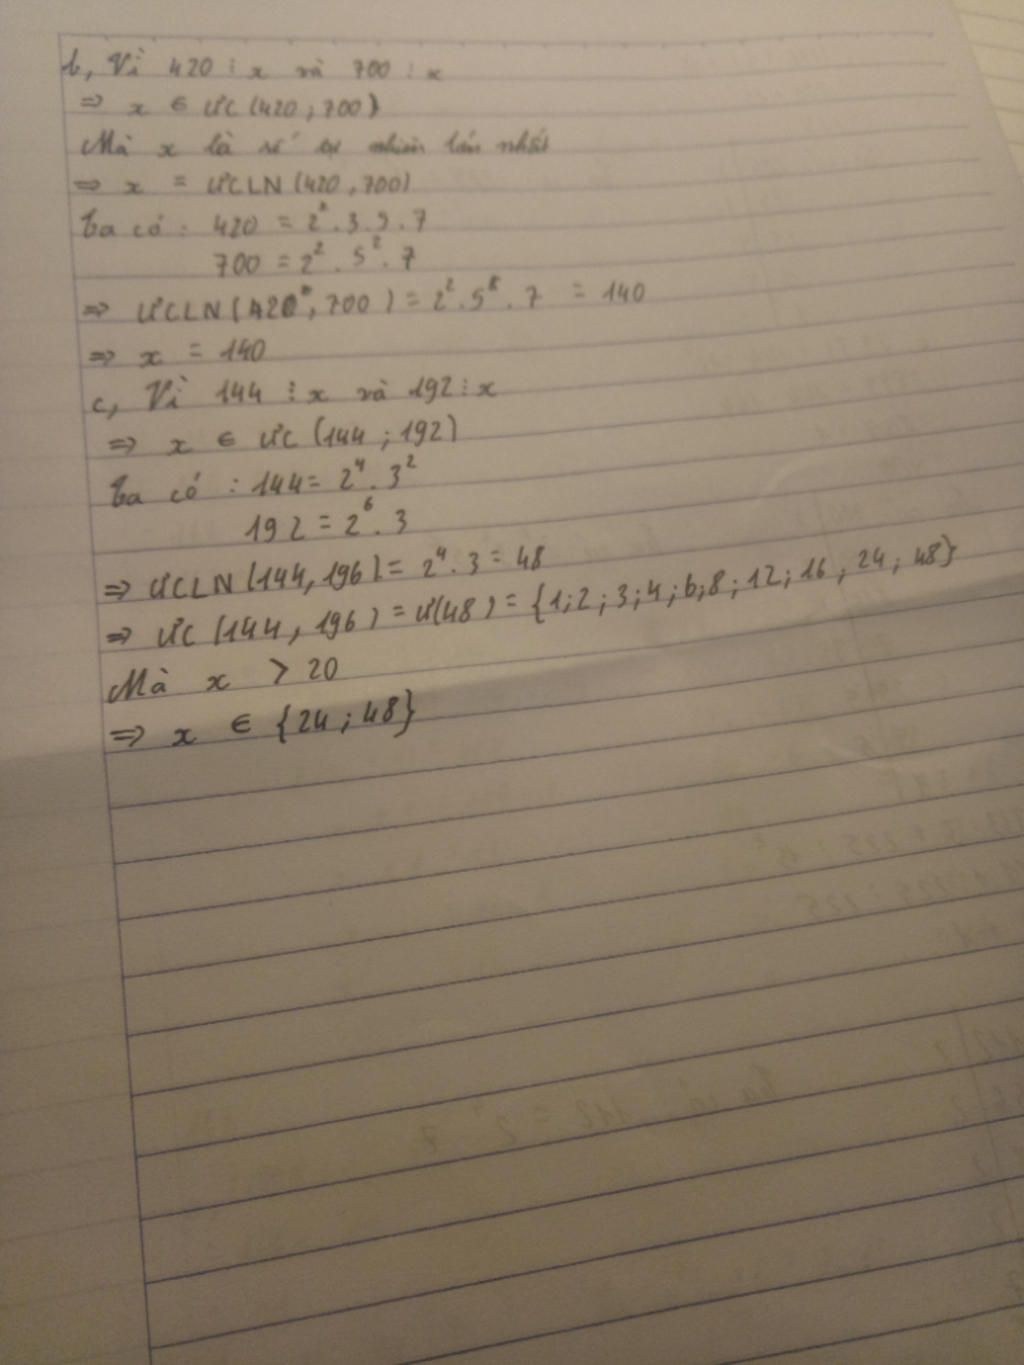 b, Vì 420 ⋮ x và 700 ⋮ x
=> x ∈ ƯC (420 ; 700)
Mà x là số tự nhiên lớn nhất
=> x = ƯCLN (420 , 700)
Ta có : 420 = 2² . 3 . 5 . 7
700 = 2² . 5² . 7
=> ƯCLN (420 , 700) = 2² . 5 . 7 = 140
=> x = 140
c, Vì 144 ⋮ x và 192 ⋮ x
=> x ∈ ƯC (144 ; 192)
Ta có : 144 = 2⁴ . 3²
192 = 2⁶ . 3
=> ƯCLN (144, 196) = 2⁴ . 3 = 48
=> ƯC (144, 196) = Ư(48) = {1; 2 ; 3; 4 ; 6; 8 ; 12 ; 16 ; 24 ; 48}
Mà x > 20
=> x ∈ {24 ; 48}